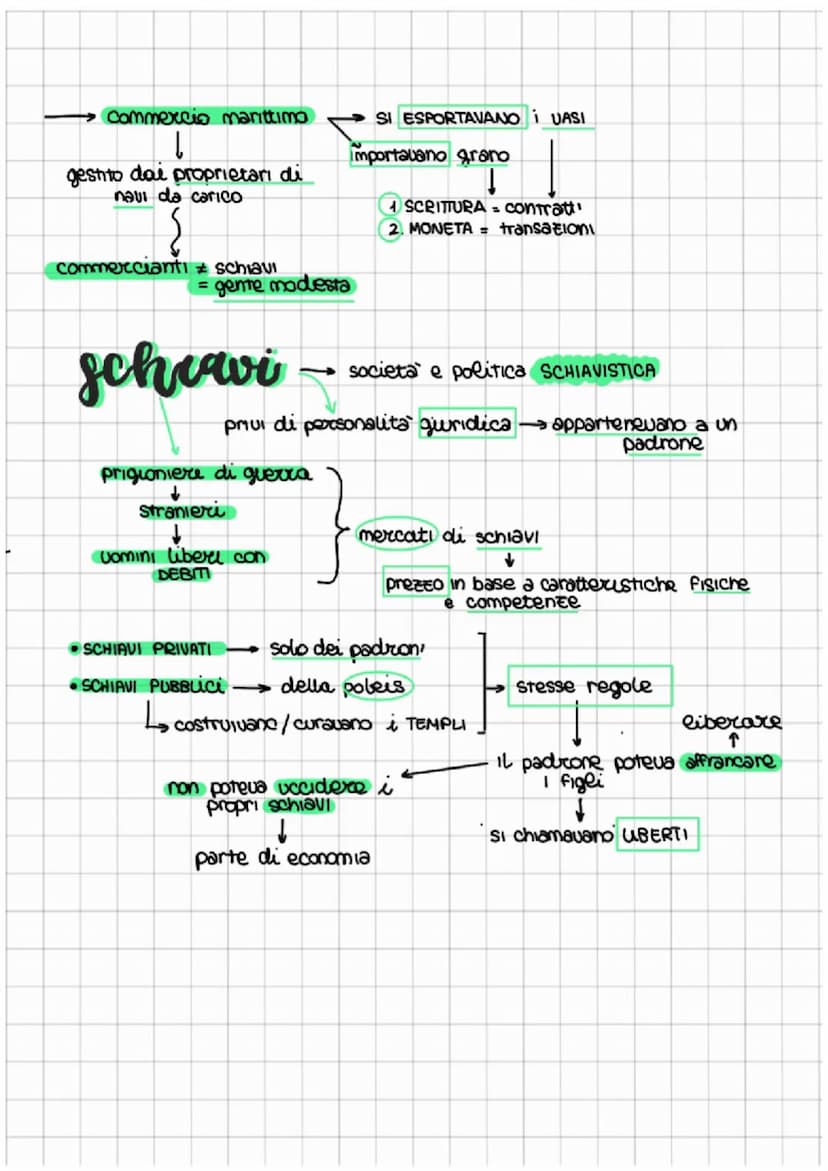 → commercio marittimo → SI ESPORTAVANO i VASI
importavano grano
gestito dai proprietari di
navi da carico
1 SCRITTURA = contratti
2. MONETA = transazioni
commercianti ≠ schiavi
= gente modesta
schiavi → società e politica SCHIAVISTICA
privi di personalità giuridica → appartenevano a un
padrone
prigionieri di guerra
stranieri
uomini liberi con
DEBITI
mercati di schiavi
prezzo in base a caratteristiche fisiche
e competenze
• SCHIAVI PRIVATI → solo dei padroni
• SCHIAVI PUBBLICI → della poleis
→ stesse regole
↳ costruivano / curavano i TEMPLI
liberare
il padrone poteva affrancare
i figli
non poteva uccidere i
propri schiavi
si chiamavano LIBERTI
parte di economia